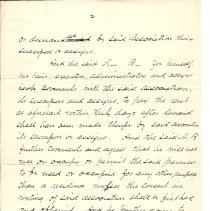 2
or demand by said Association their
successors or assigns.
And the said A— B— for himself
his heirs, executors, administrators and assigns
hereby covenants with the said association,
its successors and assigns, to pay the rent
as aforesaid within thirty days after demand
shall have been made therefor by said association
its successors or assigns. And the said A B
further covenants and agrees that he will not
use or occupy or permit the said premises
to be used or occupied for any other purpose
than a residence unless the consent in
writing of said association shall be first had
and obtained. And he further agrees to